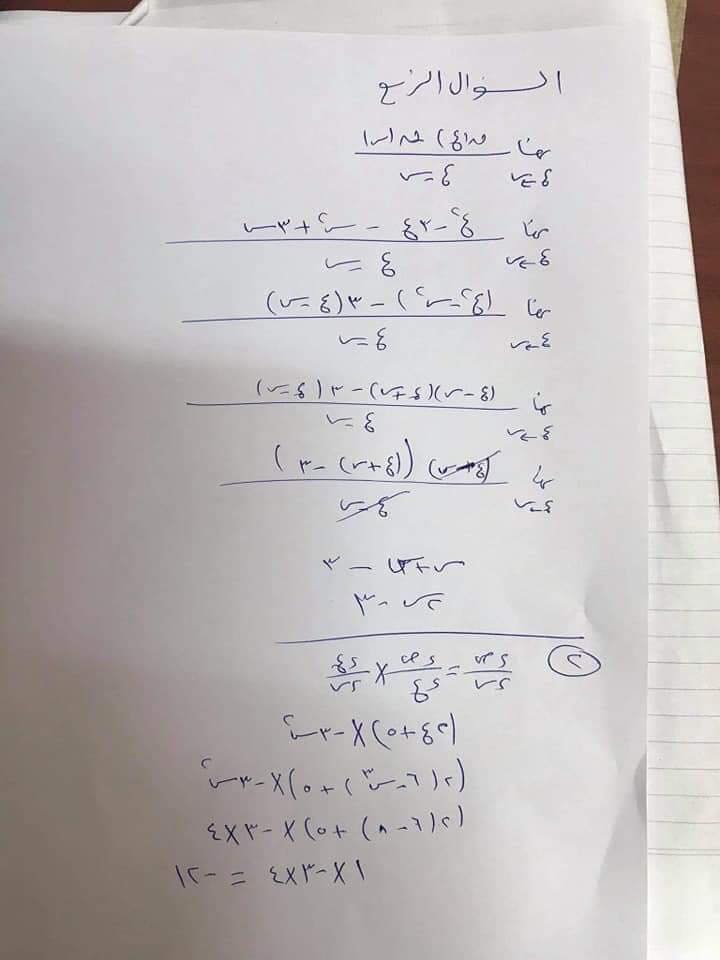 السؤال الرابع
نها ع←س ق(ع) - ق(س) / ع - س
نها ع←س ع² - ٣ع - س² + ٣س / ع - س
نها ع←س (ع² - س²) - ٣(ع - س) / ع - س
نها ع←س (ع - س)(ع + س) - ٣(ع - س) / ع - س
نها ع←س (ع - س) ((ع + س) - ٣) / ع - س
س + س - ٣
٢س - ٣
② دص/دس = دص/دع × دع/دس
(٢ع + ٥) × -٣س²
(٢(٦ - س³) + ٥) × -٣س²
(٢(٦ - ٨) + ٥) × -٣×٤
١ × -٣×٤ = -١٢